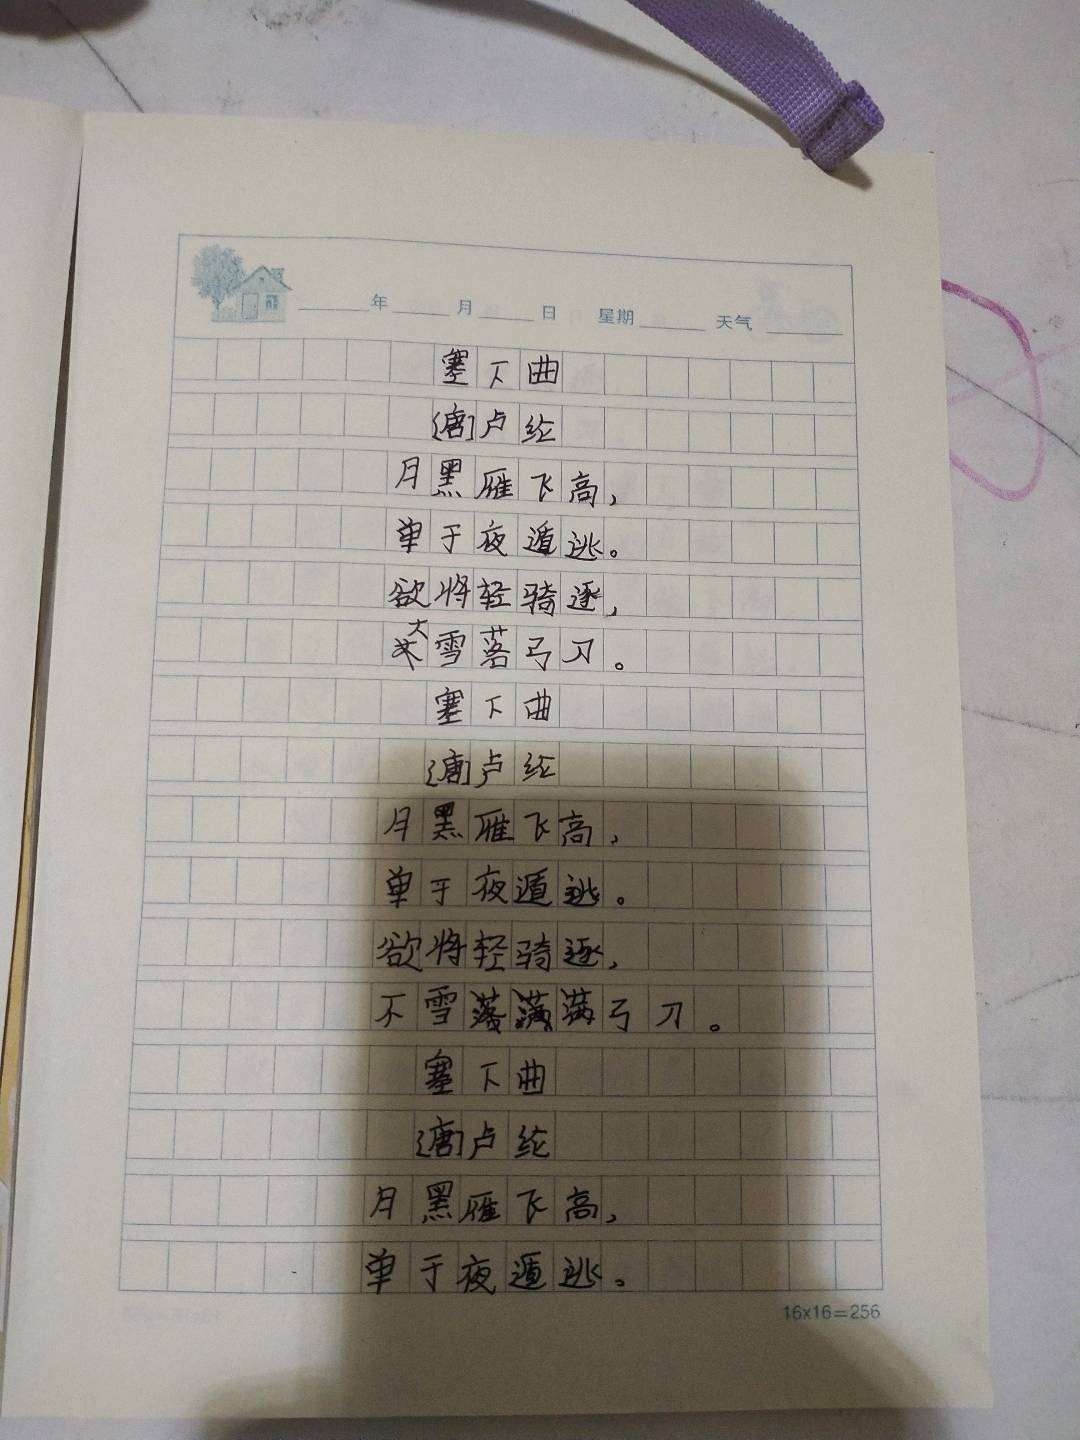 年 月 日 星期 天气
塞下曲
[唐]卢纶
月黑雁飞高，
单于夜遁逃。
欲将轻骑逐，
大雪落弓刀。
塞下曲
[唐]卢纶
月黑雁飞高，
单于夜遁逃。
欲将轻骑逐，
不雪满弓刀。
塞下曲
[唐]卢纶
月黑雁飞高，
单于夜遁逃。
16x16=256